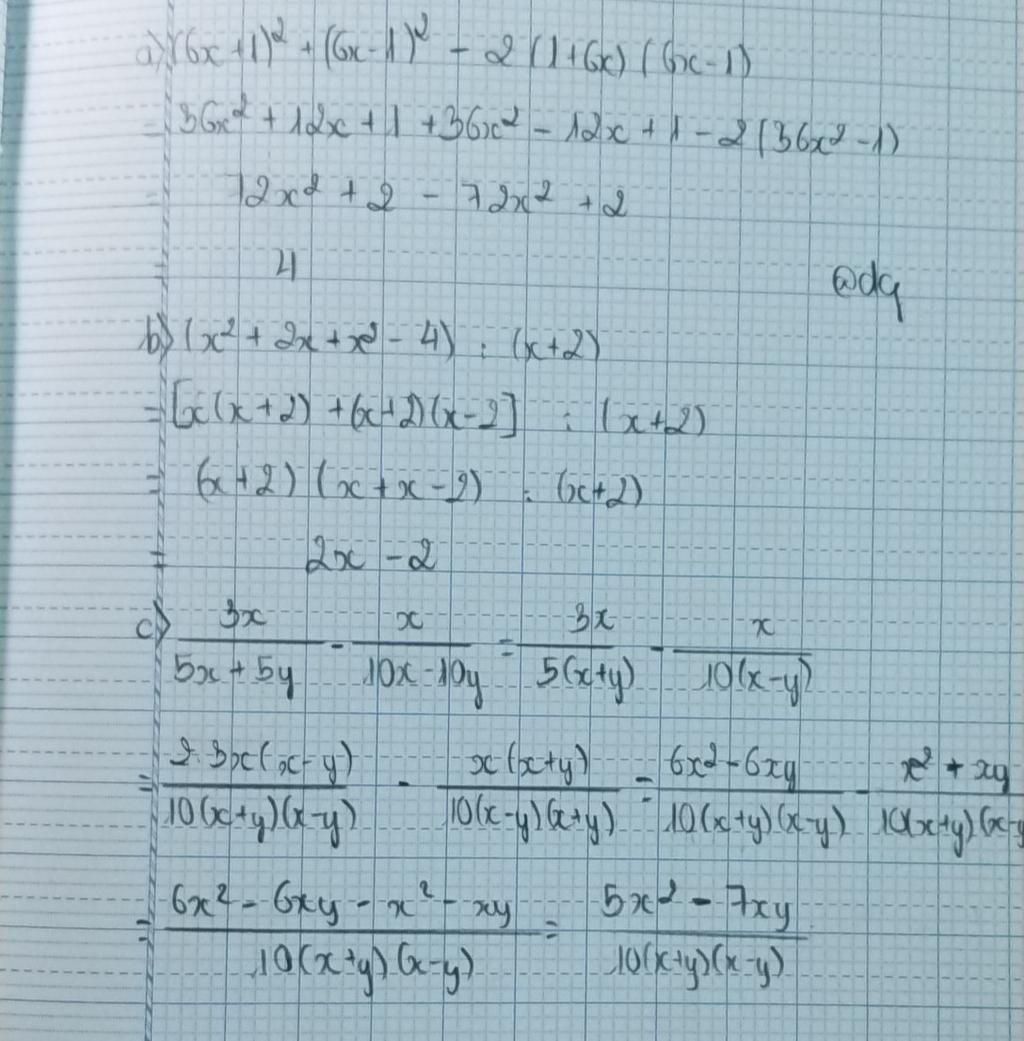 a) (6x+1)² + (6x-1)² - 2(1+6x)(6x-1)
= 36x² + 12x + 1 + 36x² - 12x + 1 - 2(36x² - 1)
= 72x² + 2 - 72x² + 2
= 4
@dq
b) (x² + 2x + x² - 4) : (x+2)
= [x(x+2) + (x+2)(x-2] : (x+2)
= (x+2)(x+x-2) : (x+2)
= 2x - 2
c) 3x/(5x+5y) - x/(10x-10y) = 3x/5(x+y) - x/10(x-y)
= 2.3x(x-y)/10(x+y)(x-y) - x(x+y)/10(x-y)(x+y) = 6x²-6xy/10(x+y)(x-y) - x²+xy/10(x+y)(x-y
= 6x² - 6xy - x² - xy/10(x+y)(x-y) = 5x² - 7xy/10(x+y)(x-y)